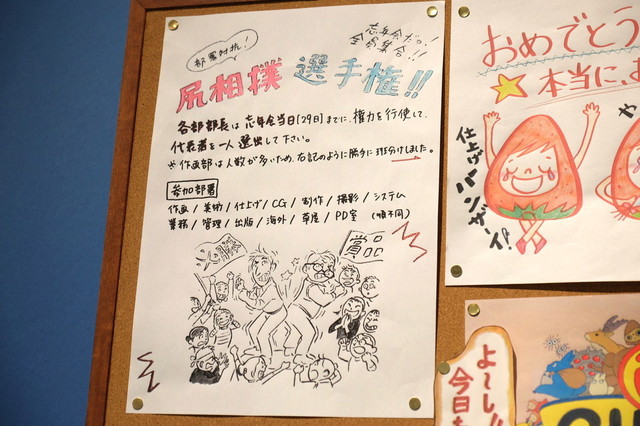 部署対抗!
忘年会だヨ!
全員集合!!
尻相撲 選手権!!
各部部長は忘年会当日[29日]までに、権力を行使して、
代表者を一人選出して下さい。
※作画部は人数が多いため、右記のように勝手に班分けしました。
参加部署
作画/美術/仕上げ/CG/制作/撮影/システム
業務/管理/出版/海外/草屋/PD室 (順不同)
賞品
おめでとう
本当に、お
仕上げ
バンザーイ!
や
よ~し!!
今日も